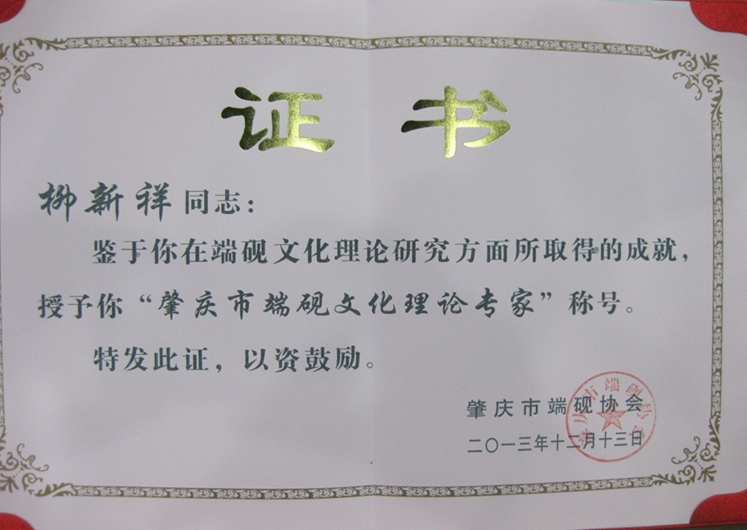 证书
柳新祥同志：
鉴于你在端砚文化理论研究方面所取得的成就，
授予你“肇庆市端砚文化理论专家”称号。
特发此证，以资鼓励。
肇庆市端砚协会
二〇一三年十二月十三日
肇庆市端砚协会